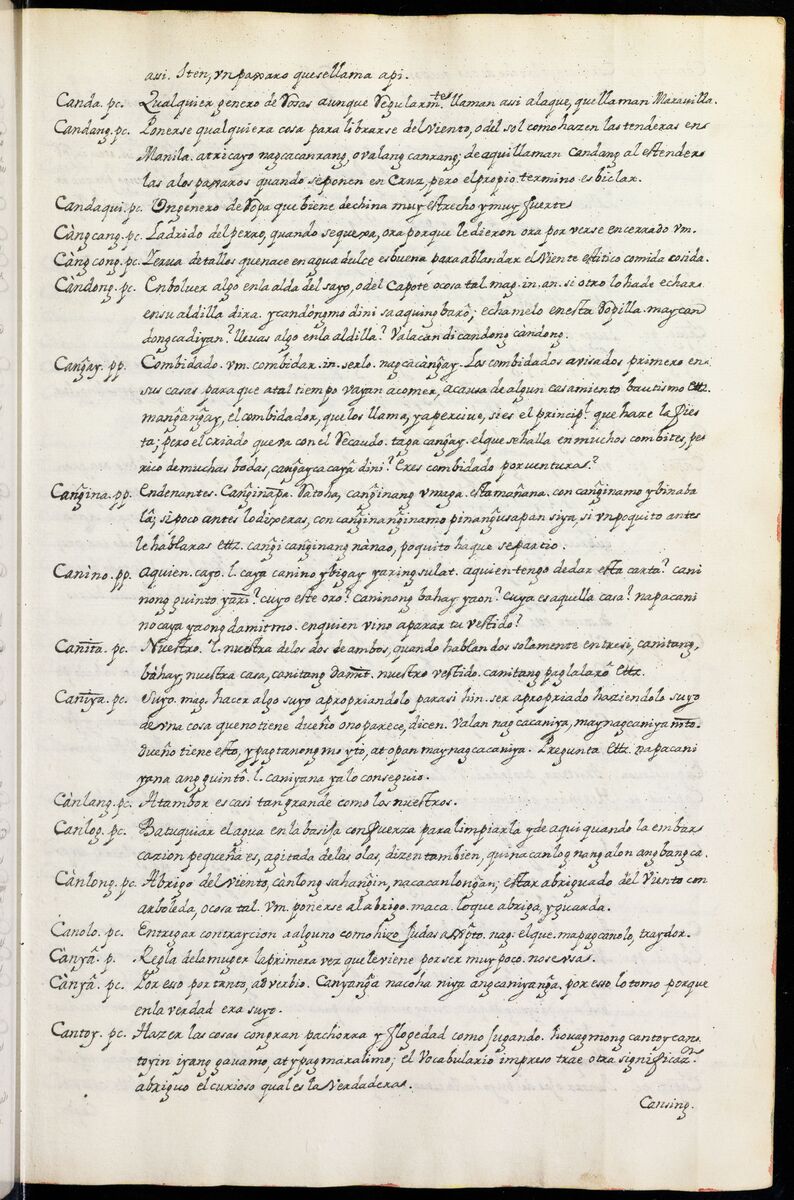 assi. Iten, vn paxaro que se llama api.
Canda. pc. Qualquier genero de Rosas aunque Regularmtes llaman assi ala que, que llaman Marauilla.
Candang. pc. Ponerse qualquiera cosa para librarse del viento, o del sol como hazen las tenderas en
Manila. at ricayo nagcacanrang, o valang canrang; de aqui llaman Candang al estender
las alos paxaros quando se ponen en Cruz, pero el propio termino es biclar.
Candaqui. pc. Un genero de Ropa que biene de china muy estrecho y muy fuerte
Càngcang. pc. Ladrido del perro, quando se quexa, ora porque le dieron ora por verse encerrado vm.
Càngcong. pc. Yerua de tallos que nace en agua dulce es buena para ablandar el Viente estitico comida cosida.
Càndong. pc. Enboluer algo en la alda del sayo, o del Capote o cosa tal. mag. in. an. si otro lo ha de echar
en su aldilla dira. ycandòngmo dini sa aquing barô; echamelo en esta Ropilla. may can
dong ca diyan? lleuas algo en la aldilla? Valacan di candong càndong.
Cang̃ay. pp. Combidado. vm. combidar. in. serlo. nagcàcàng̃ay. Los combidados avisados primero en
sus casas para que a tal tiempo vayan a comer, a causa de algun casamiento bautismo ettz.
mang̃ang̃ay, el combidador, que los llama, y apercive, si es el principl. que haze la fies
ta; pero el criado que va con el Recaudo. taga cang̃ay. el que se halla en muchos combites, pe
rico de muchas bodas, cang̃ay ca cayã dini? Eres combidado por ventura?
Cang̃ina. pp. Endenantes. Cang̃inapa. Ratoha, cang̃inang vmaga. esta mañana. con cang̃inamo ybinaba
lâ; si poco antes lo dixeras, con cang̃inang̃inamo pinang̃usapan siya, si vn poquito antes
le hablaras ettz. cang̃i cang̃inang nànao, poquito ha que se partio.
Canìno. pp. aquien. cayo. l. caya canino ybigay yaring sulat. aquien tengo de dar esta carta? cani
nong guinto yari? cuyo este oro? caninong bahay yaon? cuya es aquella casa? napacani
no caya yaong damitmo. en quien vino aparar tu vestido?
Canita. pc. Nuestro. l. nuestra de los dos de ambos, quando hablan dos solamente entre si, canitang,
bahay, nuestra casa, canitang damit. nuestro vestido. canitang paglalarô ettz.
Caniya. pc. Suyo. mag. hacer algo suyo apropriandolo para si hin. ser apropriado haziendolo suyo
de vna cosa que no tiene dueño o no parece, dicen. Valan nagcacaniya, may nagcaniya nito.
dueño tiene esto, ypagtanong mo yto, at opan may nagcacaniya. Pregunta ettz. napacani
yana ang guintô. l. caniyana ya lo conseguio.
Cànlang. pc. Atambor es casi tan grande como los nuestros.
Canlog. pc. Batuquiar el agua en la basija con fuerza para limpiarla y de aqui quando la embar
cazion pequeña es, agitada de las olas, dizen tambien, quinacanlog nang alon ang bangca.
Cànlong. pc. Abrigo del viento, cànlong sa hang̃in, nacacanlong̃an; estar abriguado del Viento con
arboleda, o cosa tal. vm. ponerse al abrigo. maca. lo que abriga, y guarda.
Canolo. pc. Entregar con traycion a alguno como hizo Judas a Xpto. nag. el que. mapagcanolo, traydor.
Cànyâ. p. Regla de la muger la primera vez que le viene por ser muy poco. no se vsa.
Cànyâ. pc. Por esso por tanto, adverbio. Canyang̃a nacoha niya ang caniyang̃a. por esso lo tomo porque
en la verdad era suyo.
Cantoy. pc. Hazer las cosas con gran pachorra y flogedad como Jugando. houag mong cantoycan
toyin iyang gavamo, at ypagmaralimo; el Vocabulario impreso trae otra significazn.
abriguo el curioso qual es la Verdadera.
Cansing.